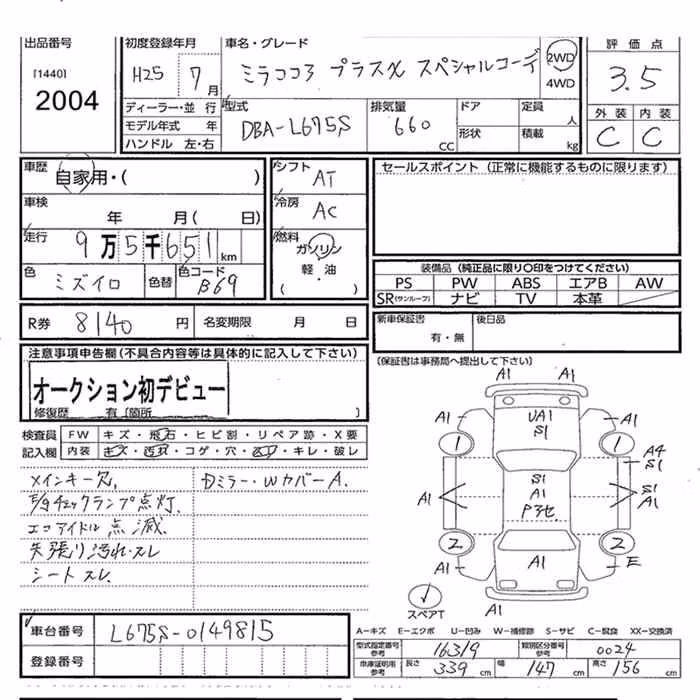 出品番号 初度登録年月 車名・グレード 評価点
[1440] H25 7月 ミラココア プラスX スペシャルコーデ 2WD 4WD 3.5
2004
ディーラー・並行 型式 排気量 ドア 定員 人 外装 内装
モデル年式 年 DBA-L675S 660 CC 形状 積載 kg C C
ハンドル 左・右
車歴 自家用・( ) シフト AT セールスポイント(正常に機能するものに限ります)
車検 年 月( 日) 冷房 AC
走行 9万5千651km 燃料 ガソリン 軽・油 ( )
色 ミズイロ 色替 色コード B69
装備品(純正品に限り○印をつけてください)
PS PW ABS エアB AW
SR(サンルーフ) ナビ TV 本革
R券 8140円 名変期限 月 日 新車保証書 有・無 後日品
注意事項申告欄(不具合内容等は具体的に記入して下さい) (保証書は事務局へ提出して下さい)
オークション初デビュー
修復歴 有(箇所 )
検査員 FW キズ・飛石・ヒビ割・リペア跡・X要
記入欄 内装 キズ・汚れ・コゲ・穴・ キレ・破レ
メインキー欠, Dミラー・Wカバー A.
E/gチェックランプ点灯.
エコアイドル点滅.
天張り汚れ・スレ
シートスレ.
A1 A1
A1 UA1 S1 A1
1 1
A4 S1
A1 S1 A1 S1 A1
2 2
A1 A1 E
スペアT
A1
車台番号 L675S-0149815
登録番号
A-キズ E-エクボ U-凹み W-補修跡 S-サビ C-腐食 XX-交換済
型式指定番号 参考 16319 類別区分番号 参考 0024
車庫証明用 参考 長さ 339cm 幅 147cm 高さ 156cm